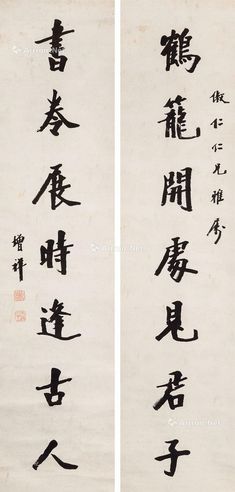 鶴籠開處見君子
仁仁兄雅屬
書卷展時逢古人
增祥